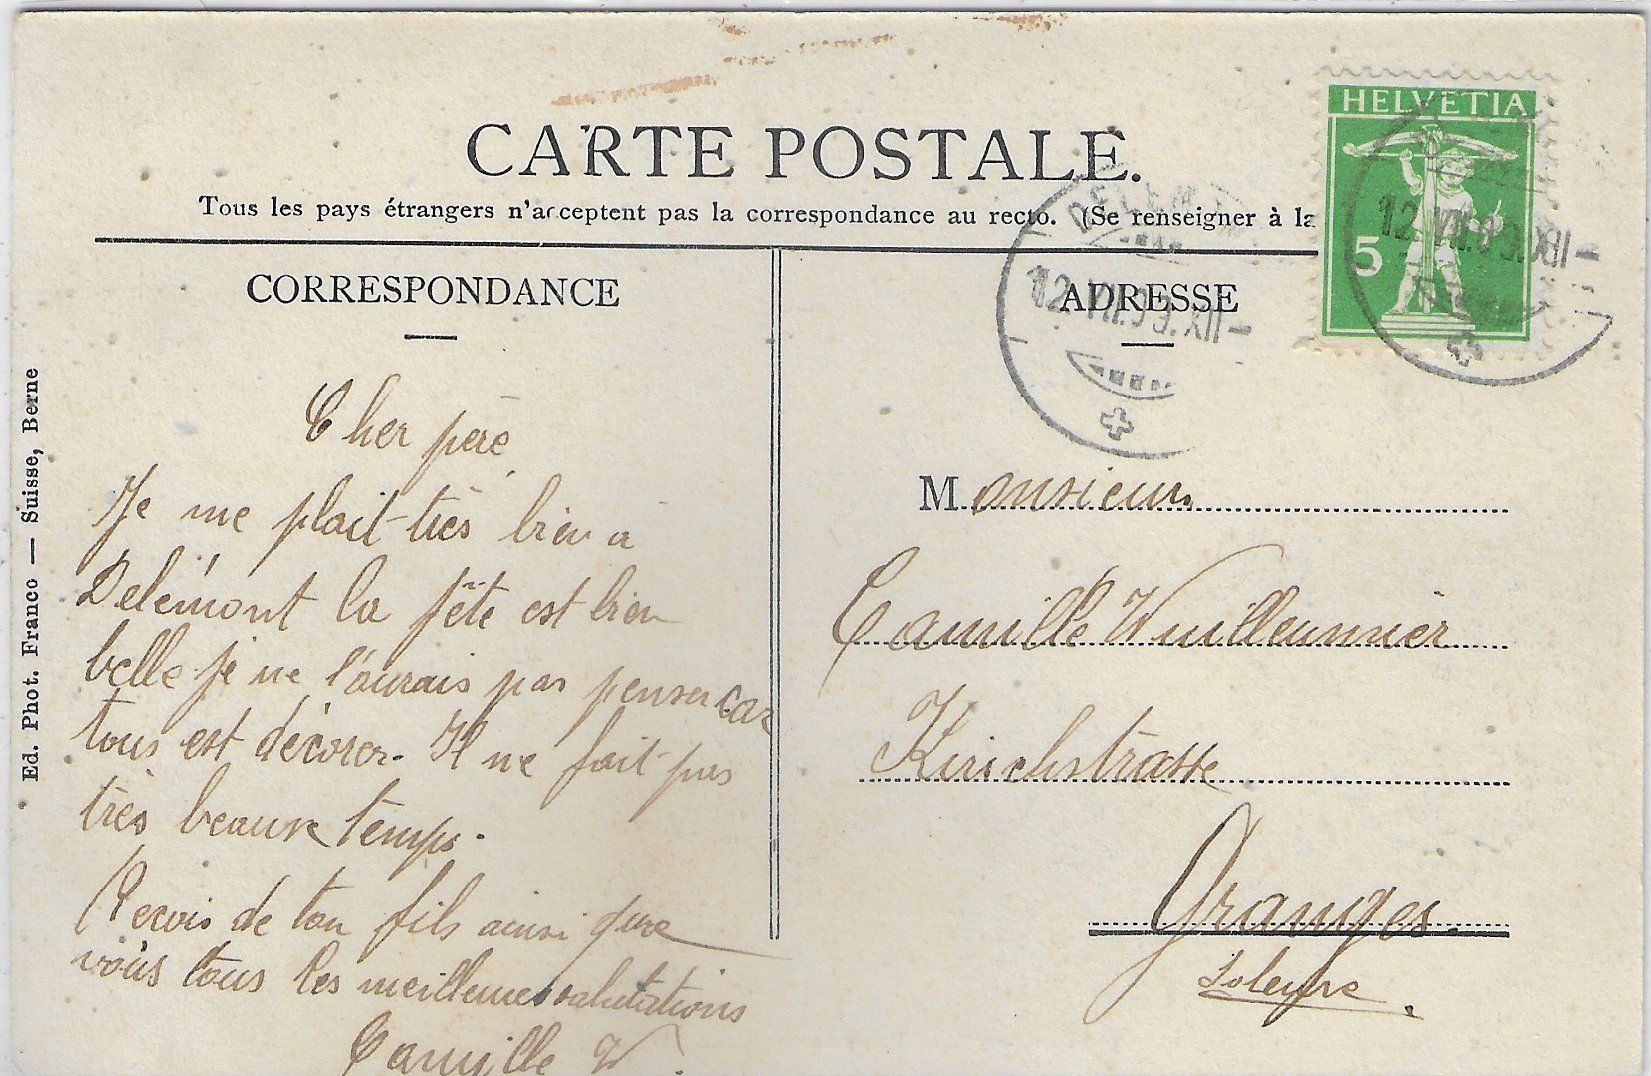 CARTE POSTALE.
Tous les pays étrangers n'acceptent pas la correspondance au recto. (Se renseigner à la
CORRESPONDANCE
Cher père
Je me plait très bien a
Delémont la fête est bien
belle je ne l'aurais pas penser car
tous est décorer. Il ne fait pas
très beaux temps.
Recois de ton fils ainsi que
vous tous les meilleures salutations
Camille W.
Ed. Phot. Franco — Suisse, Berne
HELVETIA
5
12.VII.09.XII-
DELEM
12.VII.09.XII-
ADRESSE
Monsieur
Camille Wuilleumier
Kirichstrasse
Granges.
Soleure.